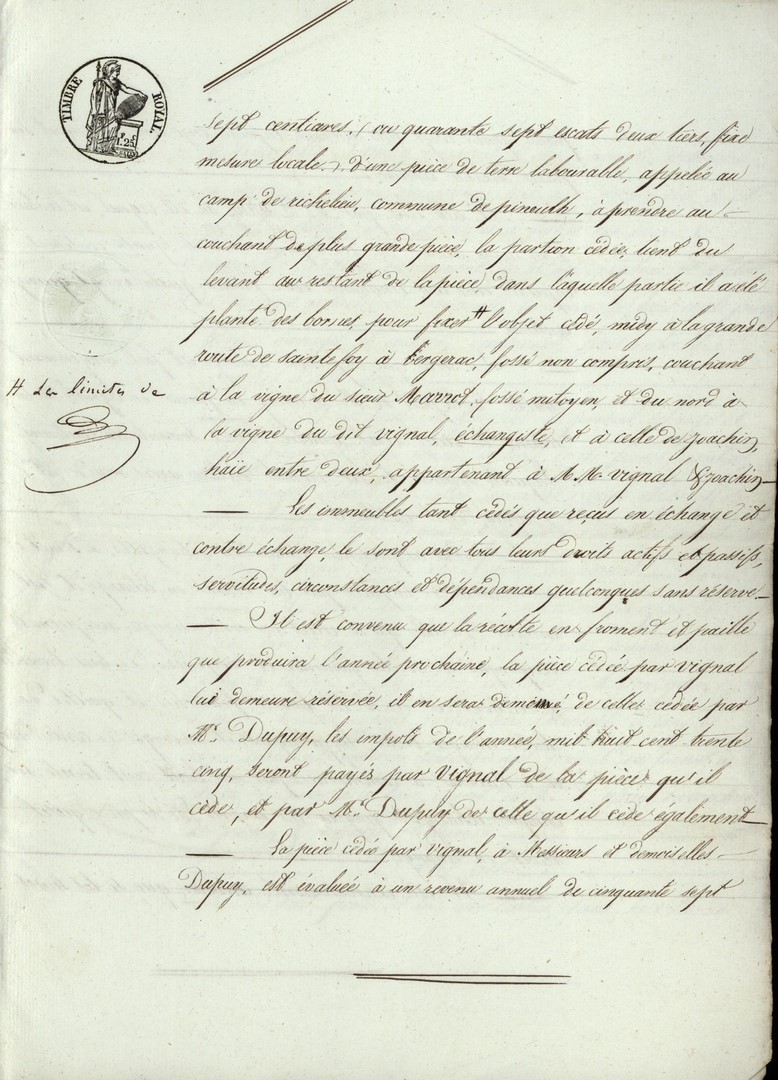 TIMBRE ROYAL.
1f. 25c
sept centiares, (ou quarante sept escats deux tiers, fixe
mesure locale,) d'une pièce de terre labourable, appelée au
camp de richelieu, commune de pineuilh, à prendre au
couchant de plus grande pièce, la partion cédée, tient du
levant au restant de la pièce, dans laquelle partie il a été
planté des bornes, pour fixer # l'objet cédé, midy à la grande
route de sainte foy à bergerac, fossé non compris, couchant
# Les limites de
à la vigne du sieur Marrot, fossé mitoyen, et du nord à
la vigne du dit vignal, échangiste, et à celle de joachin,
haïe entre deux, appartenant à M.M. vignal & joachin
Les immeubles tant cédés que reçus en échange et
contre échange, le sont avec tous leurs droits actifs et passifs,
servitudes, circonstances et dépendances quelconques sans réserve.
Il est convenu que la récolte en froment et paille
que produira l'année prochaine, la pièce cédée par vignal
lui demeure réservée, il en sera de même, de celle cédée par
Mr. Dupuy, les impots de l'année, mil huit cent trente
cinq, seront payés par vignal de la pièce qu'il
cède, et par Mr. Dupuy de celle qu'il cède également
La pièce cédée par vignal, à Messieurs et demoiselles
Dupuy, est évaluée à un revenu annuel de cinquante sept